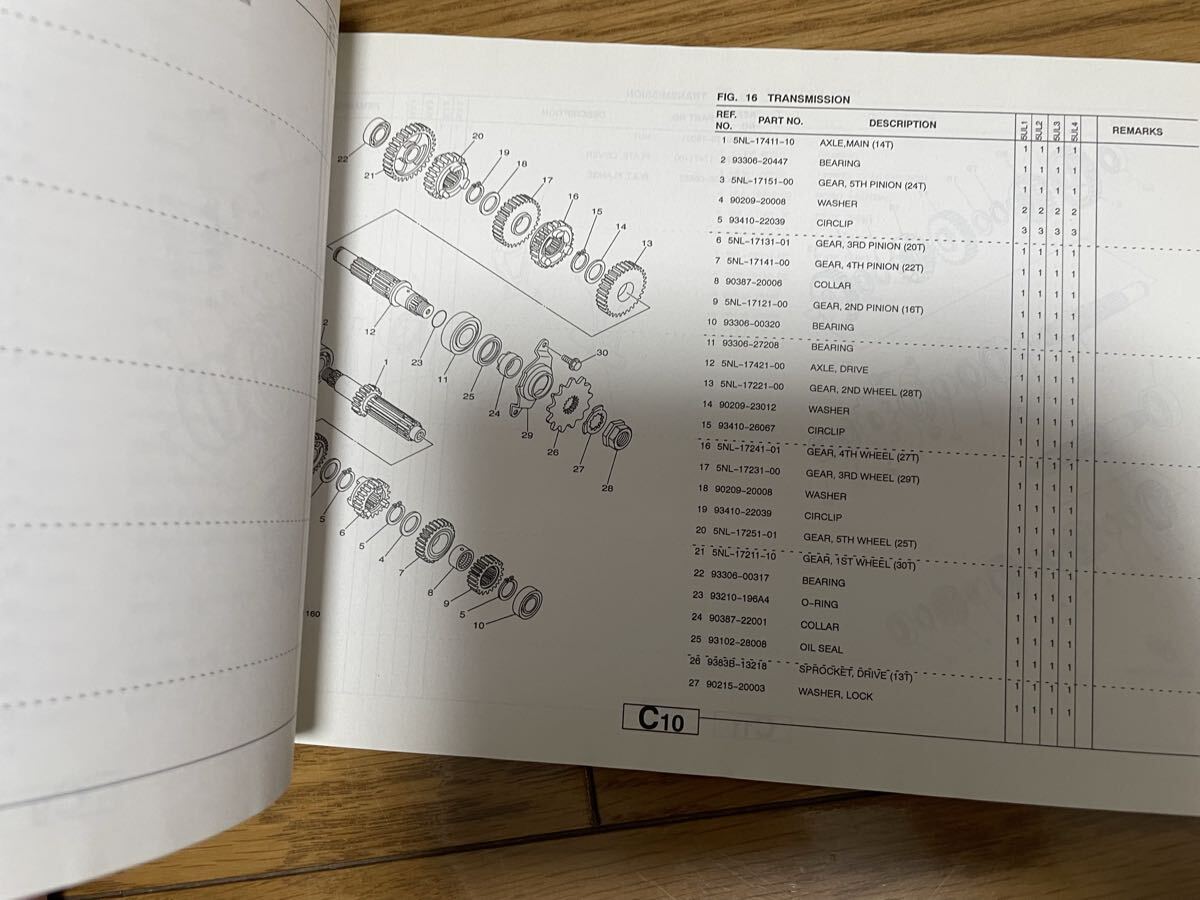 FIG. 16 TRANSMISSION
REF. NO. PART NO. DESCRIPTION 5UL1 5UL2 5UL3 5UL4 REMARKS
1 5NL-17411-10 AXLE,MAIN (14T) 1 1 1 1
2 93306-20447 BEARING 1 1 1 1
3 5NL-17151-00 GEAR, 5TH PINION (24T) 1 1 1 1
4 90209-20008 WASHER 2 2 2 2
5 93410-22039 CIRCLIP 3 3 3 3
6 5NL-17131-01 GEAR, 3RD PINION (20T) 1 1 1 1
7 5NL-17141-00 GEAR, 4TH PINION (22T) 1 1 1 1
8 90387-20006 COLLAR 1 1 1 1
9 5NL-17121-00 GEAR, 2ND PINION (16T) 1 1 1 1
10 93306-00320 BEARING 1 1 1 1
11 93306-27208 BEARING 1 1 1 1
12 5NL-17421-00 AXLE, DRIVE 1 1 1 1
13 5NL-17221-00 GEAR, 2ND WHEEL (28T) 1 1 1 1
14 90209-23012 WASHER 1 1 1 1
15 93410-26067 CIRCLIP 1 1 1 1
16 5NL-17241-01 GEAR, 4TH WHEEL (27T) 1 1 1 1
17 5NL-17231-00 GEAR, 3RD WHEEL (29T) 1 1 1 1
18 90209-20008 WASHER 1 1 1 1
19 93410-22039 CIRCLIP 1 1 1 1
20 5NL-17251-01 GEAR, 5TH WHEEL (25T) 1 1 1 1
21 5NL-17211-10 GEAR, 1ST WHEEL (30T) 1 1 1 1
22 93306-00317 BEARING 1 1 1 1
23 93210-196A4 O-RING 1 1 1 1
24 90387-22001 COLLAR 1 1 1 1
25 93102-28008 OIL SEAL 1 1 1 1
26 9383B-13218 SPROCKET, DRIVE (13T) 1 1 1 1
27 90215-20003 WASHER, LOCK 1 1 1 1
22
21
20
19
18
17
16
15
14
13
12
23
11
25
24
30
29
26
27
28
2
1
5
6
5
4
7
8
9
5
10
160
C10